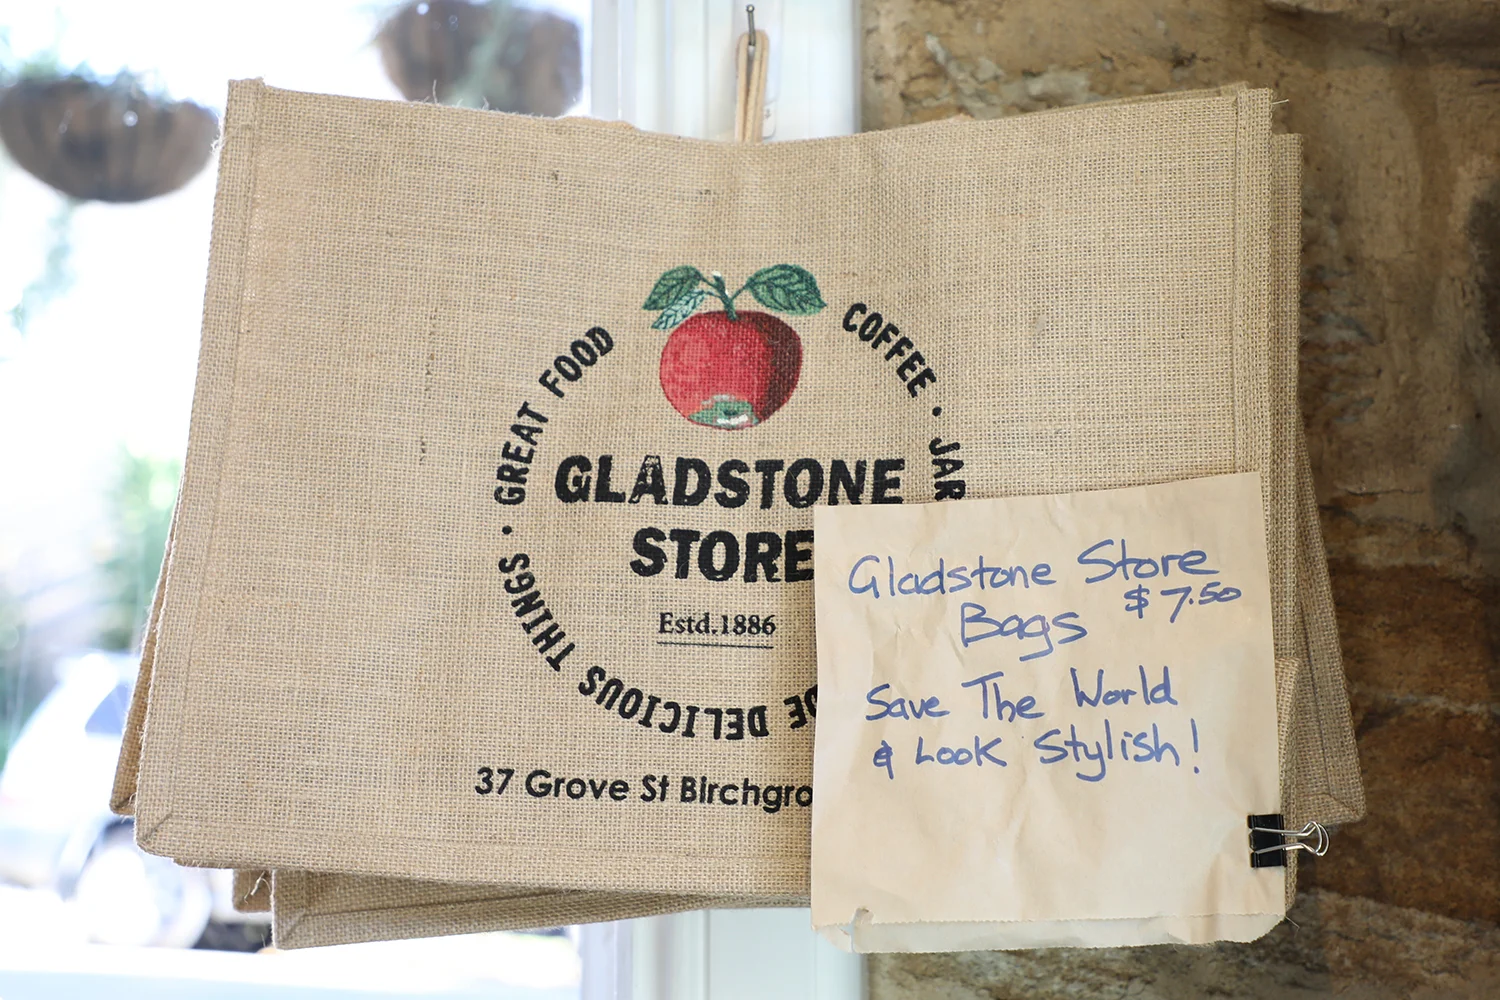 GREAT FOOD
COFFEE · JAR
GLADSTONE
STORE
Estd.1886
DELICIOUS THINGS ·
37 Grove St
Gladstone Store
Bags $7.50
Save The World
& Look Stylish!